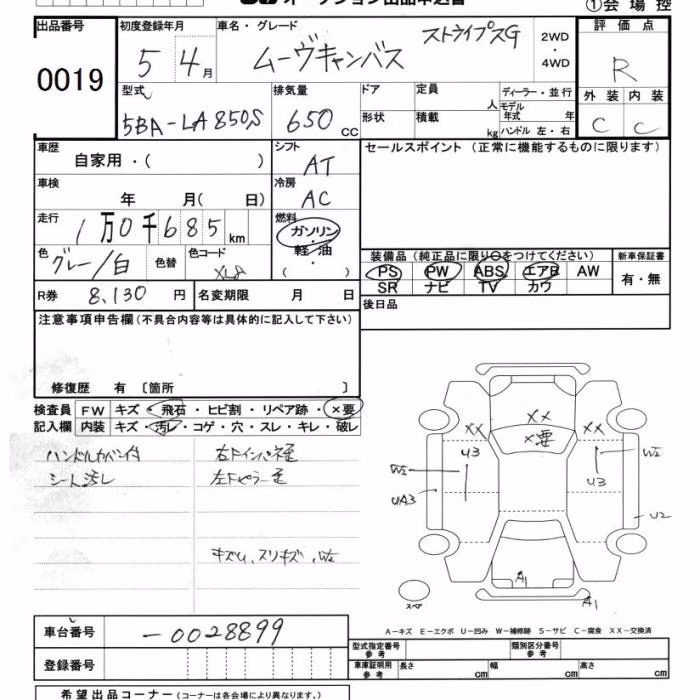 オークション出品申込書 ①会場控
出品番号 初度登録年月 車名・グレード 評価点
0019 5 4月 ムーヴキャンバス ストライプスG 2WD・4WD R
型式 排気量 ドア 定員 人 ディーラー・並行 外装 内装
5BA-LA850S 650 CC 形状 積載 kg モデル年式 年 ハンドル 左・右 C C
車歴 自家用・( ) シフト AT セールスポイント(正常に機能するものに限ります)
車検 年 月( 日) 冷房 AC
走行 1万0千685km 燃料 ガソリン・軽・油 ( )
色 グレー/白 色替 色コード XL8
装備品(純正品に限り○をつけてください) 新車保証書
PS PW ABS エアB AW 有・無
SR ナビ TV カワ
R券 8,130円 名変期限 月 日 後日品
注意事項申告欄(不具合内容等は具体的に記入して下さい)
修復歴 有〔箇所 〕
検査員 FW キズ・飛石・ヒビ割・リペア跡・×要
記入欄 内装 キズ・汚レ・コゲ・穴・スレ・キレ・破レ
ハンドルカバー付 右Fインパネ歪
シート汚レ 左Fピラー歪
キズU,スリキズ,W2
XX XX XX
×要
U3 W2
W2 U3
UA3 U2
A1
スペア A1
A-キズ E-エクボ U-凹み W-補修跡 S-サビ C-腐食 XX-交換済
車台番号 -0028899 型式指定番号 参考 類別区分番号 参考
登録番号 車庫証明用 参考 長さ cm 幅 cm 高さ cm
希望出品コーナー(コーナーは各会場により異なります。)